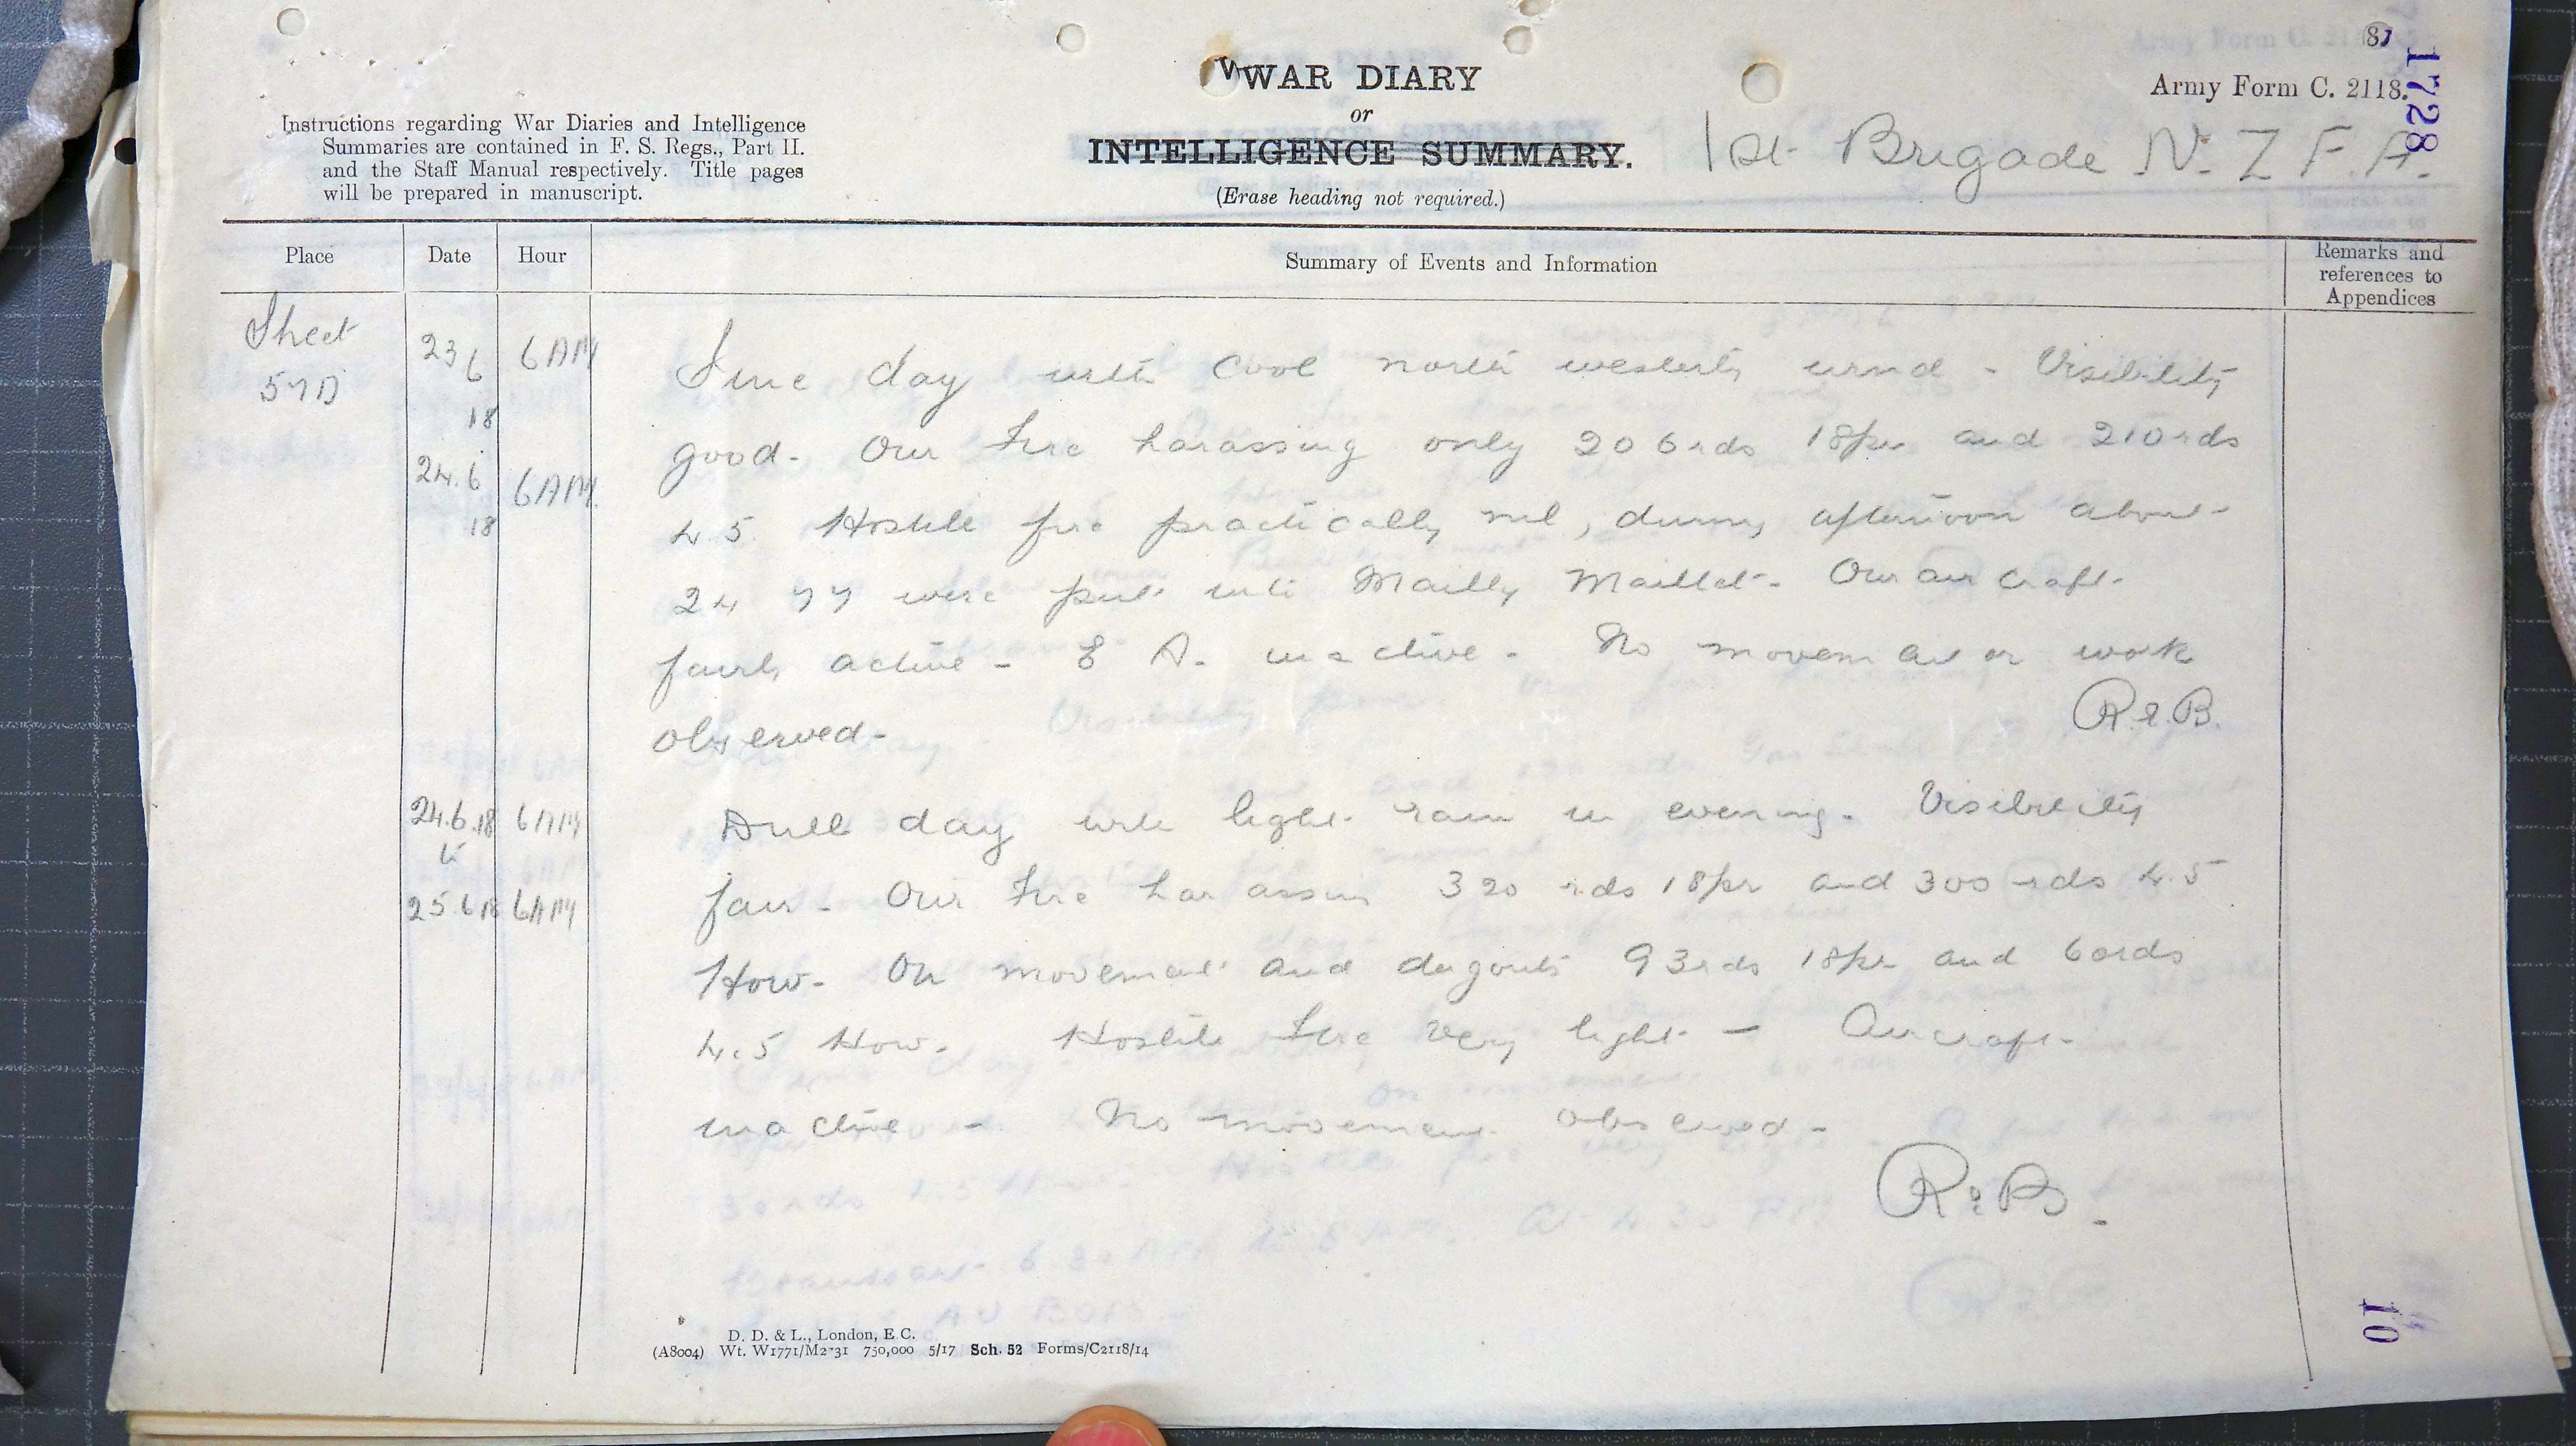 83
1728
Army Form C. 2118.
WAR DIARY
or
INTELLIGENCE SUMMARY.
(Erase heading not required.)
1st Brigade N.Z.F.A.
Instructions regarding War Diaries and Intelligence
Summaries are contained in F. S. Regs., Part II.
and the Staff Manual respectively. Title pages
will be prepared in manuscript.
Place Date Hour Summary of Events and Information Remarks and references to Appendices
Sheet
57D
23 6
18
6 AM
24.6
18
6 AM
Fine day with cool north westerly wind - Visibility
good. Our fire harassing only 206 rds 18pr and 210 rds
4 5 Hostile fire practically nil, during afternoon about
24 77 were put into Mailly Maillet. Our air craft
fairly active - E A. inactive - No movement or work
observed -
R.E.B.
24.6.18 6 AM
to
25 6 18 6 AM
Dull day with light rain in evening. Visibility
fair - Our fire harassing 320 rds 18pr and 300 rds 4.5
How. On movement and dugouts 93 rds 18pr and 60 rds
4.5 How. Hostile fire very light - Aircraft
inactive - No movement observed -
10
D. D. & L., London, E.C.
(A8004) Wt. W1771/M2731 750,000 5/17 Sch. 52 Forms/C2118/14